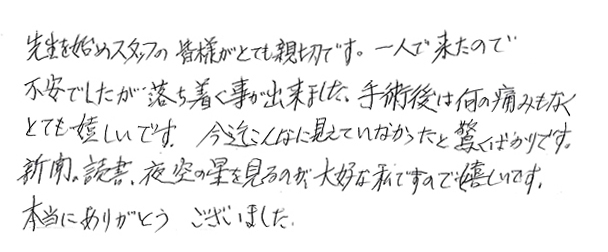 先生を始めスタッフの皆様がとても親切です。一人で来たので
不安でしたが落ち着く事が出来ました、手術後は何の痛みもなく
とても嬉しいです。今迄こんなに見えていなかったと驚くばかりです。
新聞。読書、夜空の星を見るのが、大好な私ですので嬉しいです。
本当にありがとう ございました。